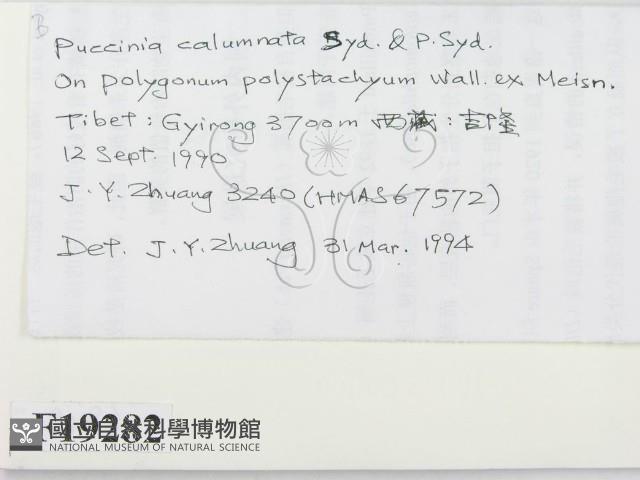 B
Puccinia calumnata Syd. & P. Syd.
On Polygonum polystachyum Wall. ex Meisn.
Tibet : Gyirong 3700m 西藏 : 吉隆
12 Sept. 1990
J. Y. Zhuang 3240 (HMAS67572)
Det. J. Y. Zhuang 31 Mar. 1994
F19282
國立自然科學博物館
NATIONAL MUSEUM OF NATURAL SCIENCE